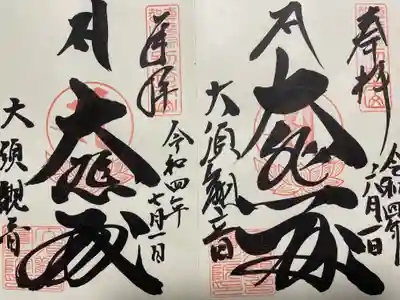 奉拝
令和四年
月一日
大悲殿
大須觀音
奉拝
令和四年
七月一日
大悲殿
大須觀音